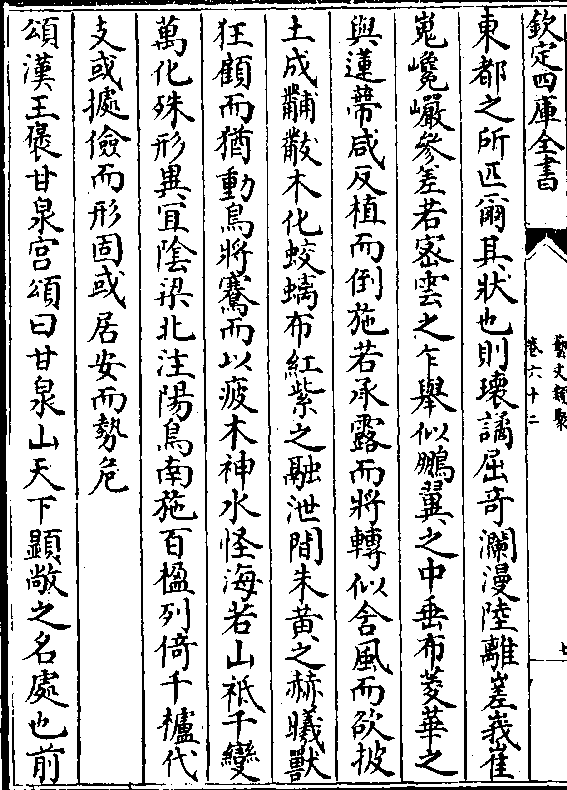 欽定四庫全書
藝文類聚
卷六十二
七
東都之所匹爾其狀也則瓌譎屈奇瀾漫陸離嵳峩崔
嵬巉巖參差若密雲之乍舉似鵬翼之中垂布菱華之
與蓮蔕咸反植而倒施若承露而將轉似含風而欲披
土成黼黻木化蛟螭布紅紫之融泄間朱黄之赫曦獸
狂顧而猶動鳥將騫而以疲木神水怪海若山祇千變
萬化殊形異冝陰梁北注陽鳥南施百楹列倚千櫨代
支或據儉而形固或居安而勢危
頌漢王褒甘泉宫頌曰甘泉山天下顯敞之名處也前